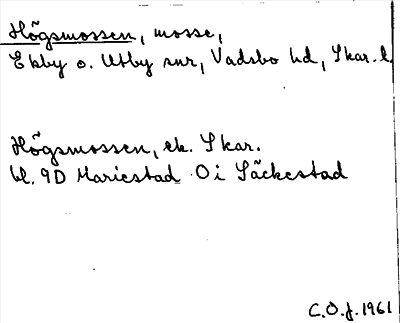 Högsmossen, mosse,
Ekby o. Utby snr, Vadsbo hd, Skar. l.
Högsmossen, ek. Skar.
bl. 9D Mariestad O i Säckestad
C.O.J. 1961